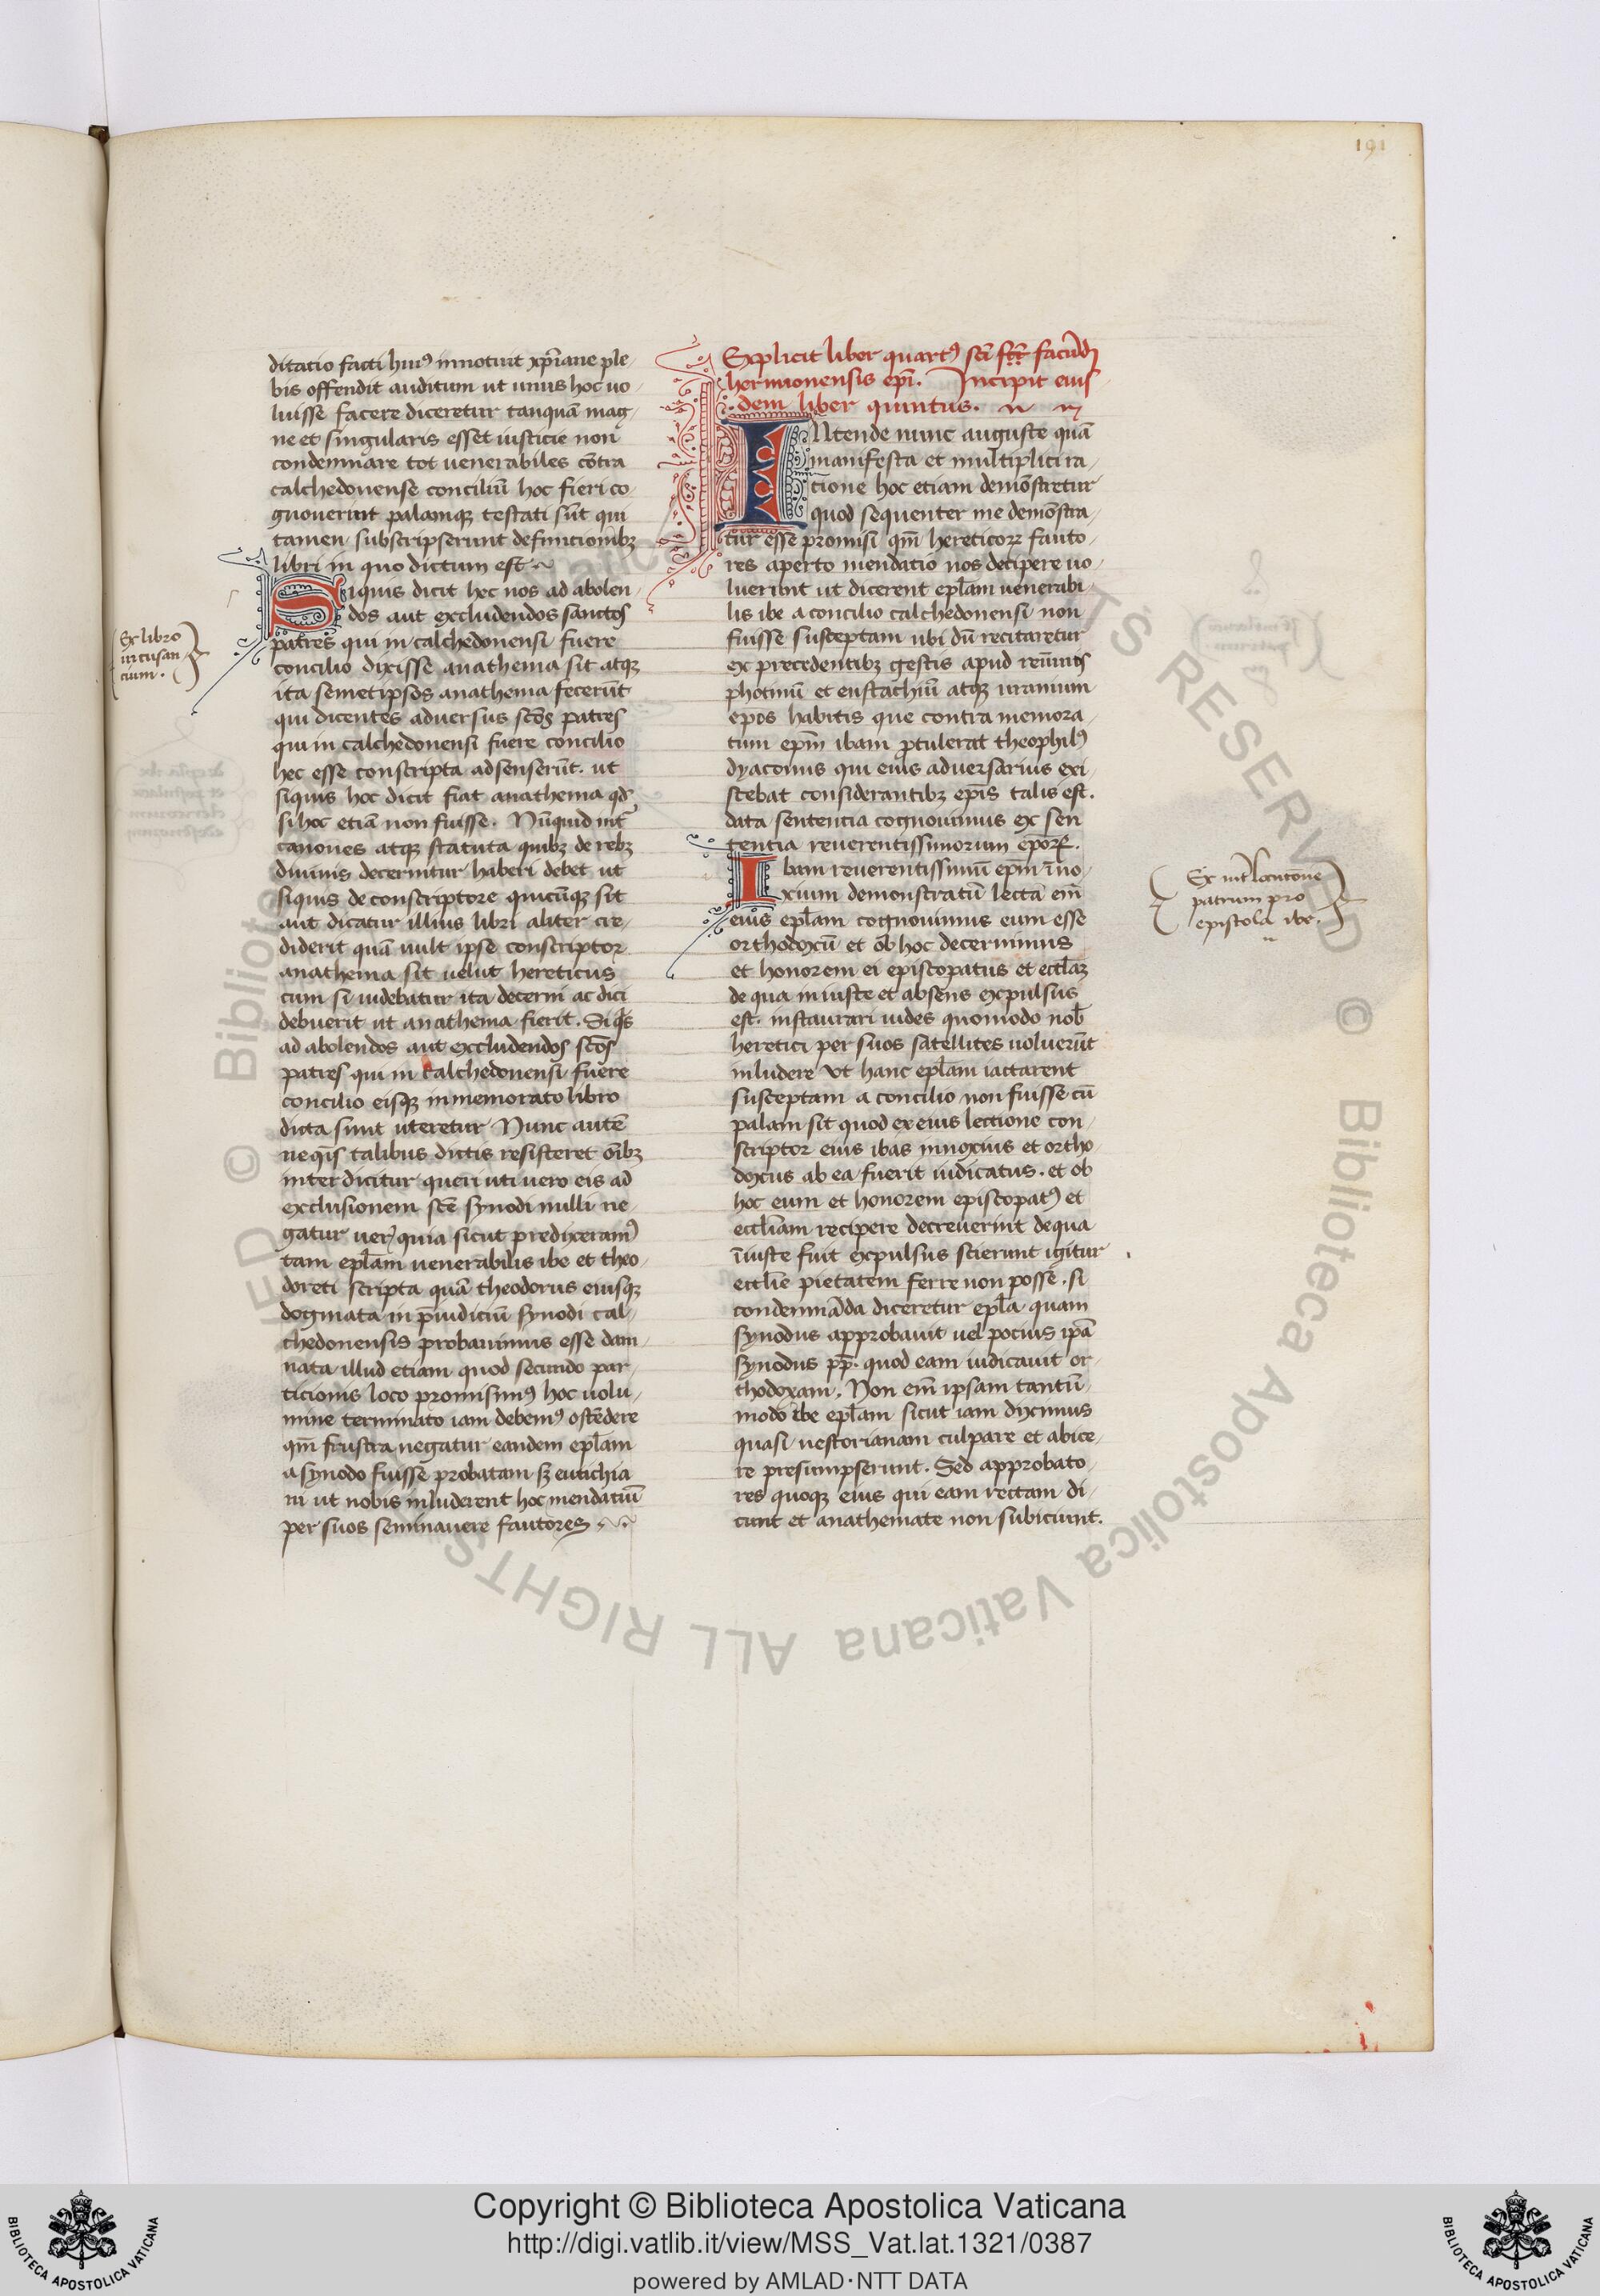 191
ditatio facti huiꝰ innotuit xp̄iane ple
bis offendit auditum ut unus hoc uo
luisse facere diceretur tanquā mag
ne et singularis esset iusticie non
condemnare tot uenerabiles cōtra
calchedonense conciliū hoc fieri co
gnouerint palamqꝫ testati sūt qui
tamen subscripserunt definicionibꝫ
libri in quo dictum est
Siquis dicit hec nos ad abolen
dos aut excludendos sanctos
patres qui in calchedonensi fuere
concilio dixisse anathema sit atqꝫ
ita semetipsos anathema fecerūt
qui dicentes aduersus scōs patres
qui in calchedonensi fuere concilio
hec esse conscripta adsenserūt. ut
siquis hoc dicit fiat anathema qd
si hoc etiā non fuisse. Nūquid int̄
canones atqꝫ statuta quibꝫ de rebꝫ
diuinis decernitur haberi debet ut
siquis de conscriptore quicūqꝫ sit
aut dicatur illius libri aliter cre
diderit quā uult ipse conscriptor
anathema sit uelut hereticus
cum si uidebatur ita decerni ac dici
debuerit ut anathema fierit. Si qͥs
ad abolendos aut excludendos scōs
patres qui in calchedonensi fuere
concilio eisqꝫ in memorato libro
dicta sunt uteretur Nunc autē
neqͥs talibus dictis resisteret oībꝫ
inter dicitur queri uti uero eis ad
exclusionem scē synodi nulli ne
gatur uerꝰ quia sicut predixeramꝰ
tam epl̄am uenerabilis ibe et theo
doreti scripta quā theodorus eiusqꝫ
dogmata in p̄iudiciū synodi cal
chedonensis probauimus esse dam
nata illud etiam quod secundo par
ticionis loco promisimꝰ hoc uolu
mine terminato iam debemꝰ ostēdere
qm̄ frustra negatur eandem epl̄am
a synodo fuisse probatam sꝫ eutichia
ni ut nobis inluderent hoc mendaciū
per suos seminauere fautores
Ex libro
iircusan
cium.
Explicit liber quartꝰ scī facūdi
hermionensis epī. Incipit eius
dem liber quintus.
INtende nunc auguste quā
manifesta et multiplici ra
cione hoc etiam demōstretur
quod sequenter me demōstra
tur esse promisi qm̄ hereticoꝝ fauto
res aperto mendatio nos decipere uo
luerunt ut dicerent epl̄am uenerabi
lis ibe a concilio calchedonensi non
fuisse susceptam ubi dū recitaretur
ex precedentibꝫ gestis apud
photinū et eustachiū atqꝫ uranium
epōs habitis que contra memora
tum epm̄ ibam ꝓtulerat theophilꝰ
dyaconus qui eius aduersarius exi
stebat considerantibꝫ ep̄is talis est.
data sententia cognouimus ex sen
tentia reuerentissimorum ep̄oꝝ.
Ibam reuerentissimū epm̄ īno
xium demonstratū lecta em̄
eius epl̄am cognouimus eum esse
orthodoxū et ob hoc decernimus
et honorem ei episcopatus et eccl̄aꝫ
de qua in iuste et absens expulsus
est. instaurari uides quomodo nob̄
heretici per suos satellites uoluerūt
inludere Vt hanc epl̄am iactarent
susceptam a concilio non fuisse cū
palam sit quod ex eius lectione con
scriptor eius ibas innoxius et ortho
doxus ab ea fuerit iudicatus. et ob
hoc eum et honorem episcopatꝰ et
eccl̄iam recipere decreuerint de qua
īiuste fuit expulsus scierunt igitur
eccl̄ie pietatem ferre non posse. si
condemnāda diceretur epl̄a quam
synodus approbauit uel pocius ip̄a
synodus pp̄. quod eam iudicauit or
thodoxam. Non em̄ ipsam tantū
modo ibe epl̄am sicut iam diximus
quasi nestorianam culpare et abice
re presumpserunt. Sed approbato
res quoqꝫ eius qui eam rectam di
cunt et anathemate non subiciunt.
Ex int̄locutione
patrum pro
epistola ibe.
Copyright © Biblioteca Apostolica Vaticana
http://digi.vatlib.it/view/MSS_Vat.lat.1321/0387
powered by AMLAD·NTT DATA
BIBLIOTECA APOSTOLICA VATICANA
BIBLIOTECA APOSTOLICA VATICANA
© Biblioteca Apostolica Vaticana ALL RIGHTS RESERVED